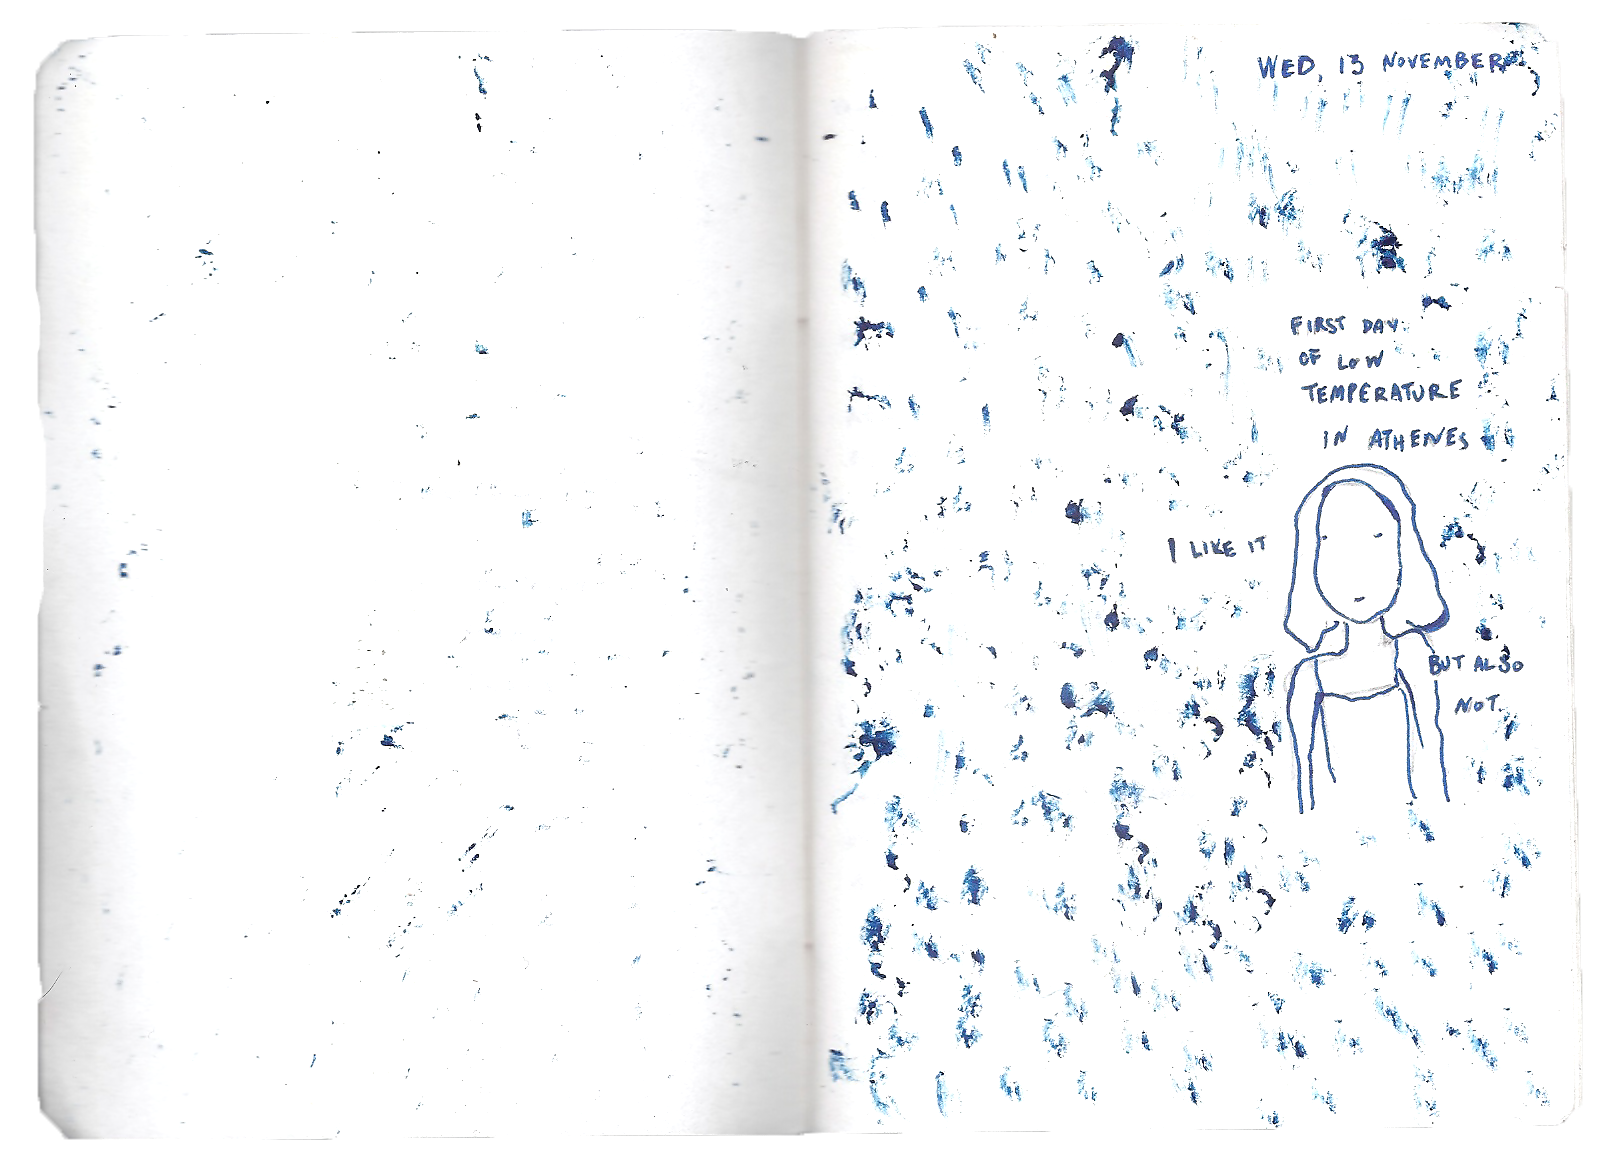 WED, 13 NOVEMBER
FIRST DAY
OF LOW
TEMPERATURE
IN ATHENES
I LIKE IT
BUT ALSO
NOT.